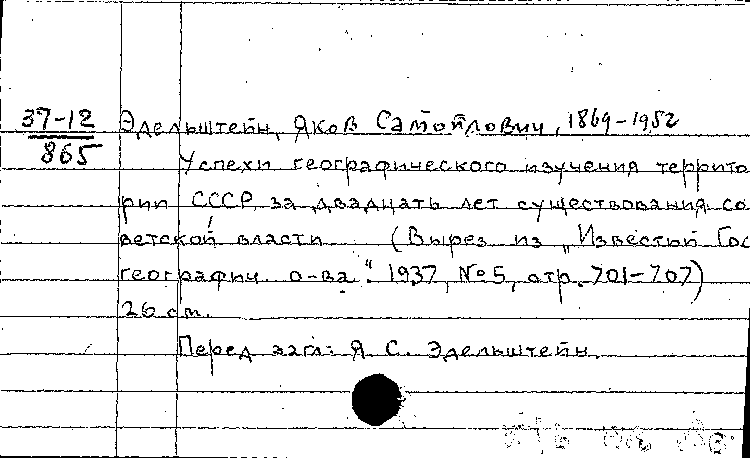 37-12 Эдельштейн, Яков Самойлович, 1869-1952
865
Успехи географического изучения террито
рии СССР за двадцать лет существования со
ветской власти (Вырез из „Известий Гос
географич. о-ва". 1937, №5, стр. 701-707)
26 cm.
Перед загл: Я. С. Эдельштейн.